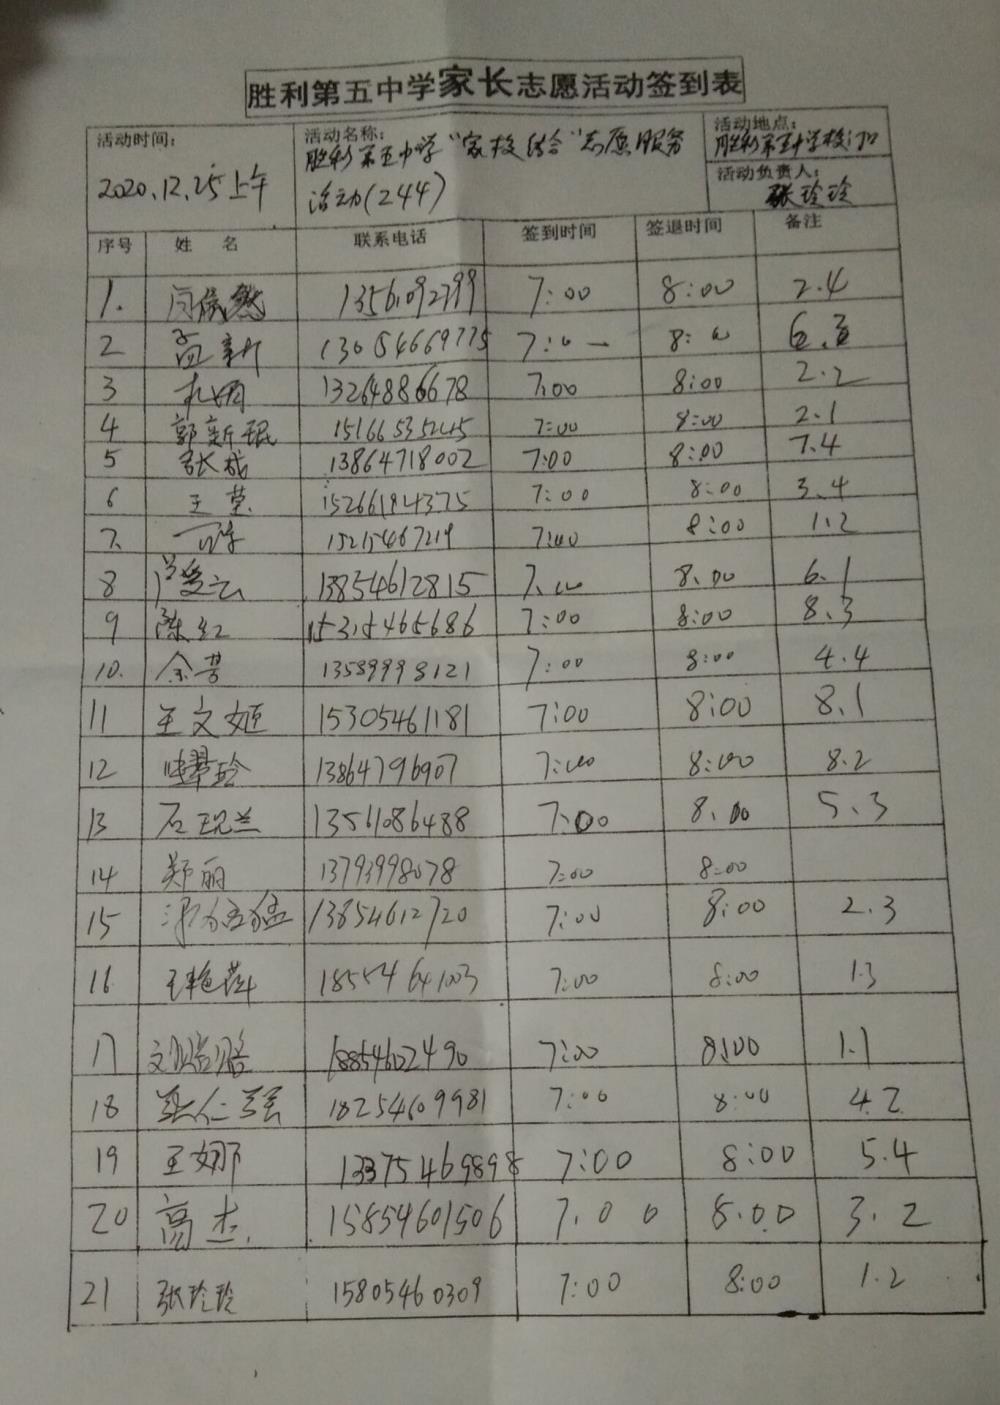 胜利第五中学家长志愿活动签到表
活动时间: 2020.12.25上午
活动名称: 胜利第五中学"家校结合"志愿服务
活动(244)
活动地点: 胜利第五中学校门口
活动负责人: 张玲玲
序号 姓 名 联系电话 签到时间 签退时间 备注
1. 13561092799 7:00 8:00 2.4
2 孟新 13054669775 7:0 8:0 6.3
3 13264886678 7:00 8:00 2.2
4 郭新琨 15166535245 7:00 8:00 2.1
5 张成 13864718002 7:00 8:00 7.4
6 王莹 15266184375 7:00 8:00 3.4
7. 15215467219 7:00 8:00 1.2
8 13854612815 7:00 8:00 6.1
9 陈红 15315465686 7:00 8:00 8.3
10. 余芳 13589998121 7:00 8:00 4.4
11 王文姬 15305461181 7:00 8:00 8.1
12 13864796907 7:00 8:00 8.2
13 石现兰 13561086488 7:00 8:00 5.3
14 郑丽 13793998078 7:00 8:00
15 13854612720 7:00 8:00 2.3
16 王艳萍 18554641003 7:00 8:00 1.3
17 18854602490 7:00 8:00 1.1
18 18254609981 7:00 8:00 4.2
19 王娜 13375469898 7:00 8:00 5.4
20 高杰. 15854601506 7.00 8.00 3.2
21 张玲玲 15805460309 7:00 8:00 1.2